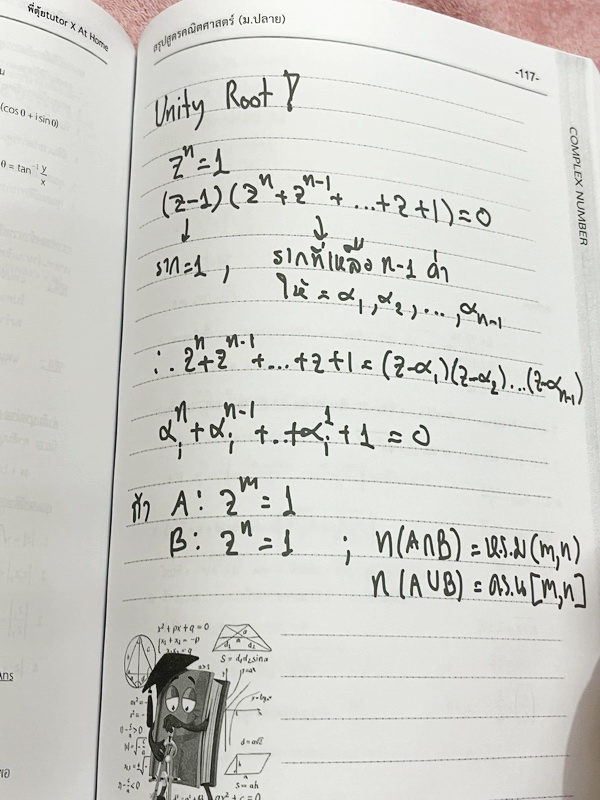 พี่ตุ้ยtutor X At Home
(cosθ + i sinθ)
θ = tan⁻¹ y/x
สรุปสูตรคณิตศาสตร์ (ม.ปลาย)
-117-
COMPLEX NUMBER
Unity Root !
zⁿ = 1
(z-1)(zⁿ + zⁿ⁻¹ + ... + z + 1) = 0
↓ ↓
ราก = 1 , รากที่เหลือ n-1 ตัว
ให้ = α₁, α₂, ..., αₙ₋₁
∴ zⁿ + zⁿ⁻¹ + ... + z + 1 = (z-α₁)(z-α₂)...(z-αₙ₋₁)
αᵢⁿ + αᵢⁿ⁻¹ + ... + αᵢ¹ + 1 = 0
ถ้า A : zᵐ = 1
B : zⁿ = 1 ; n(A∩B) = ห.ร.ม(m,n)
n(A∪B) = ค.ร.น[m,n]
x² + px + q = 0
x₁ + x₂ = -p
S = d₁d₂sinα
d = a√2
S = ah
ax² + c = 0